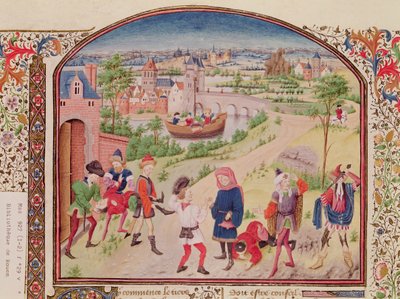 Mss 927 (I-2) f 29 v
Bibliothèque de Rouen
commence le
Doit estre